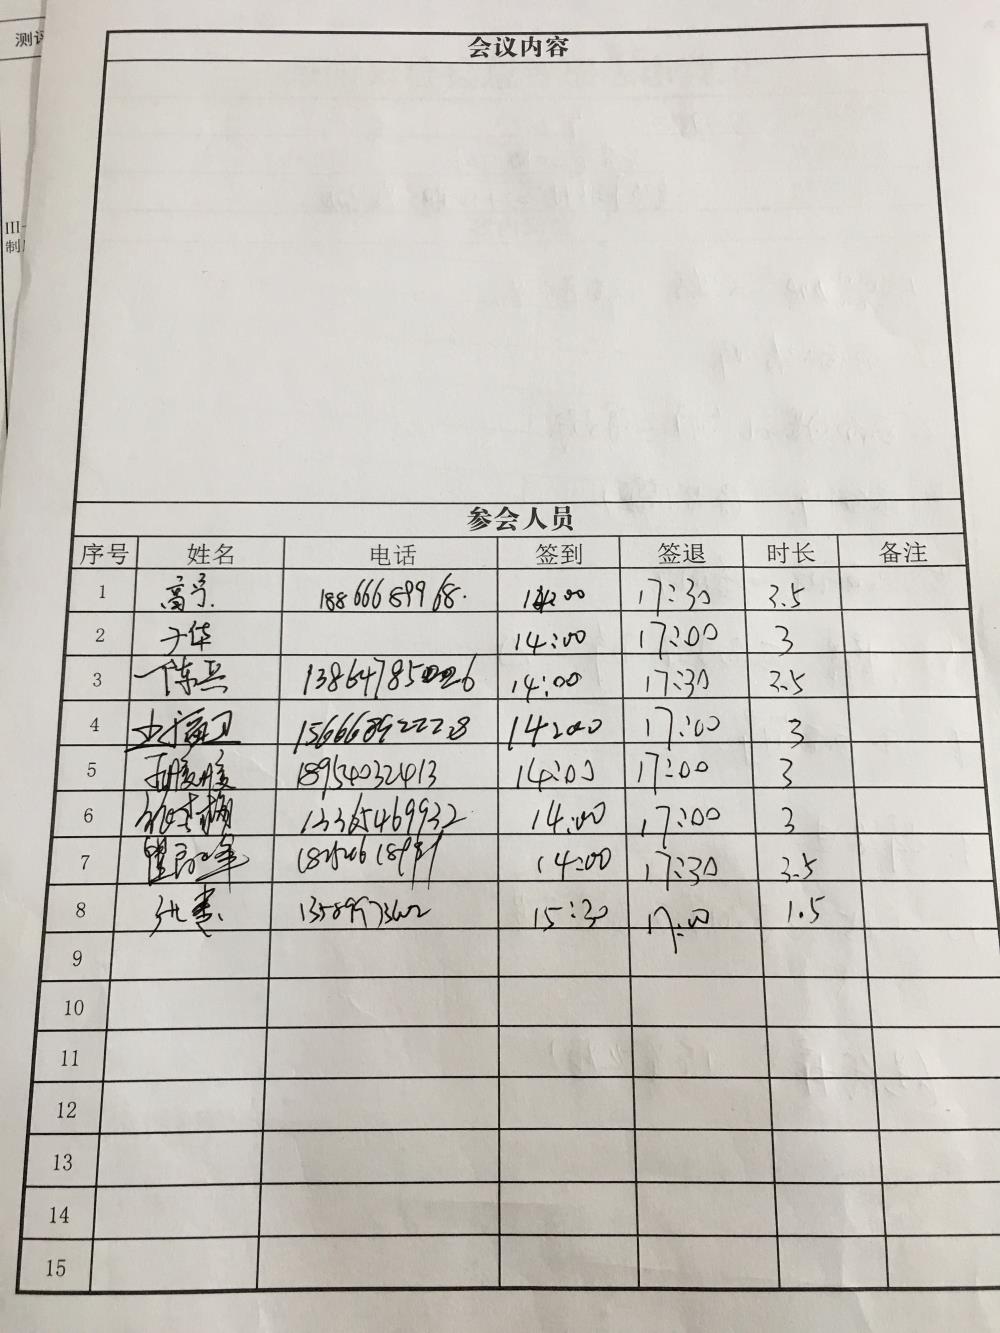 测评
III-
制
会议内容
参会人员
序号 姓名 电话 签到 签退 时长 备注
1 18866689968. 17:30 3.5
2 于华 14:00 17:00 3
3 陈兵 14:00 17:30 3.5
4 15666892228 14:00 17:00 3
5 18954032413 14:00 17:00 3
6 13365469932 14:00 17:00 3
7 14:00 17:30 3.5
8 15:30 17:00 1.5
9
10
11
12
13
14
15